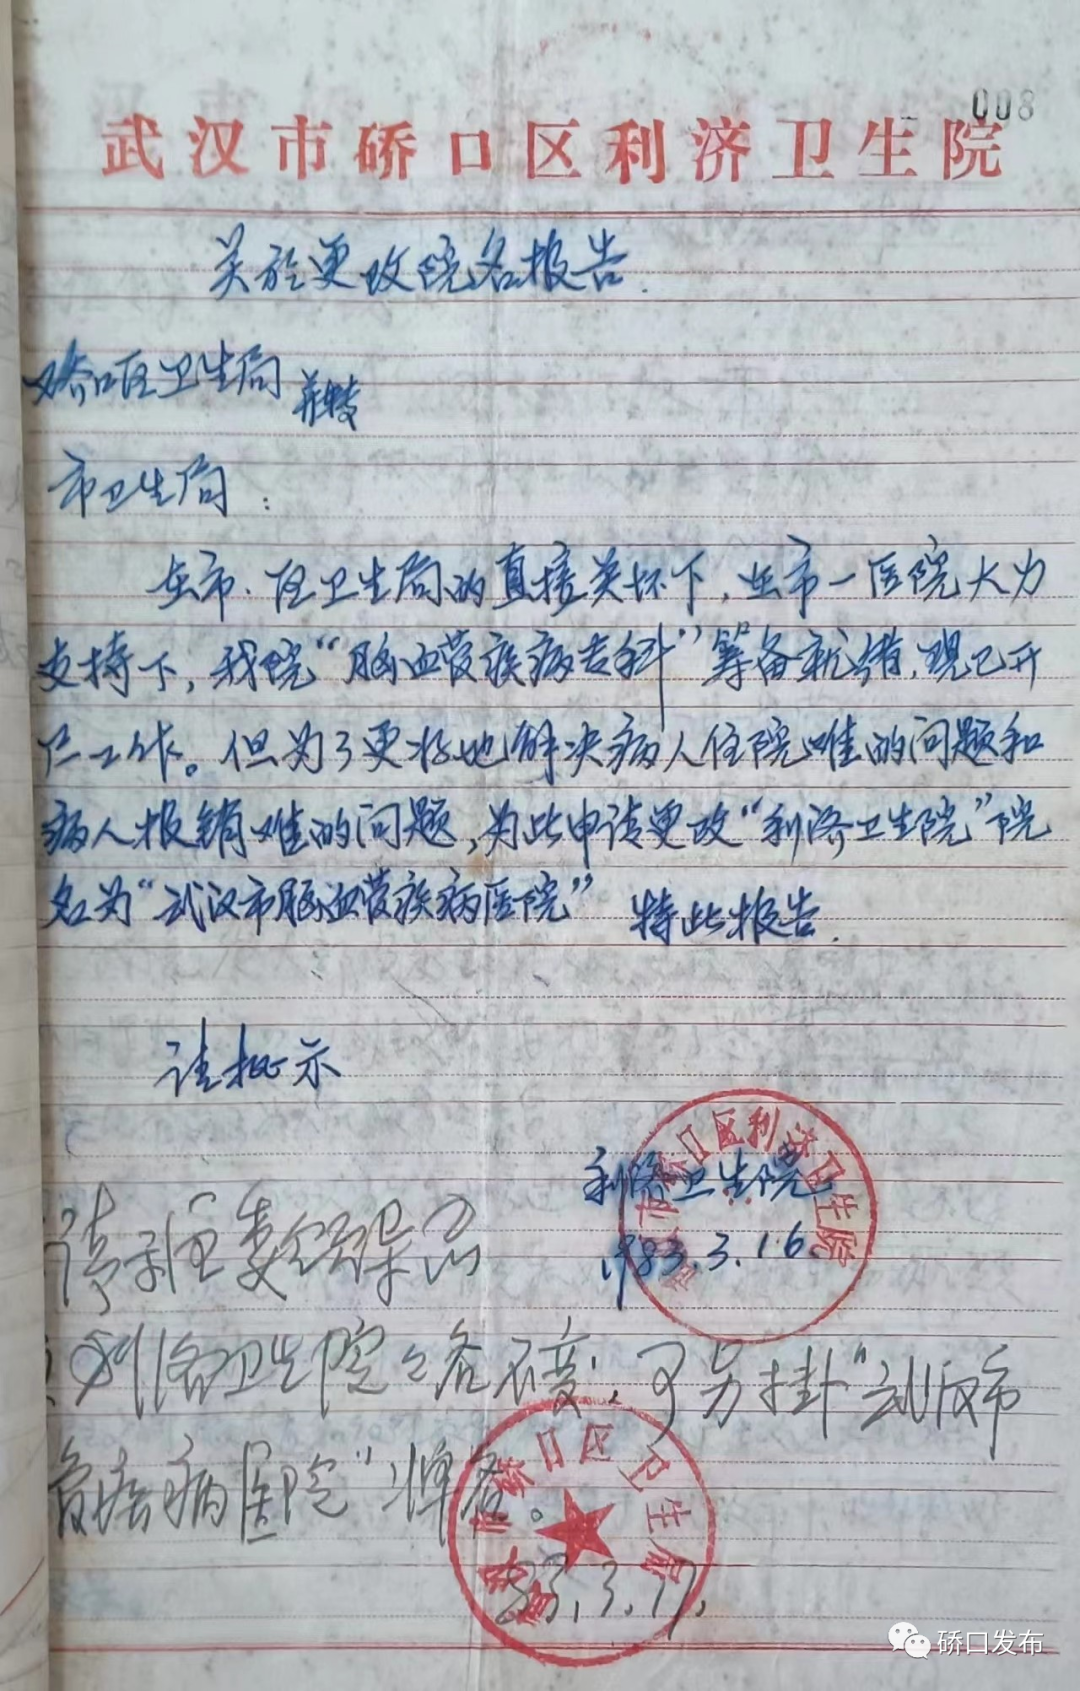 008
武汉市硚口区利济卫生院
关於更改院名报告.
硚口区卫生局 并转
市卫生局：
在市、区卫生局的直接关怀下，在市一医院大力
支持下，我院“脑血管疾病专科”筹备就绪，现已开
广工作。但为了更好地解决病人住院难的问题和
病人报销难的问题，为此申请更改“利济卫生院”院
名为“武汉市脑血管疾病医院” 特此报告.
请批示
利济卫生院
1983.3.16.
市硚口区利济卫生院
利济卫生院之名不变，可另挂“武汉市
管疾病医院”牌名。
83.3.17.
硚口区卫生局
硚口发布